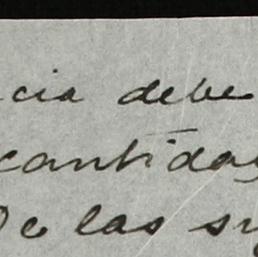 cia debe
cantidad
De las su